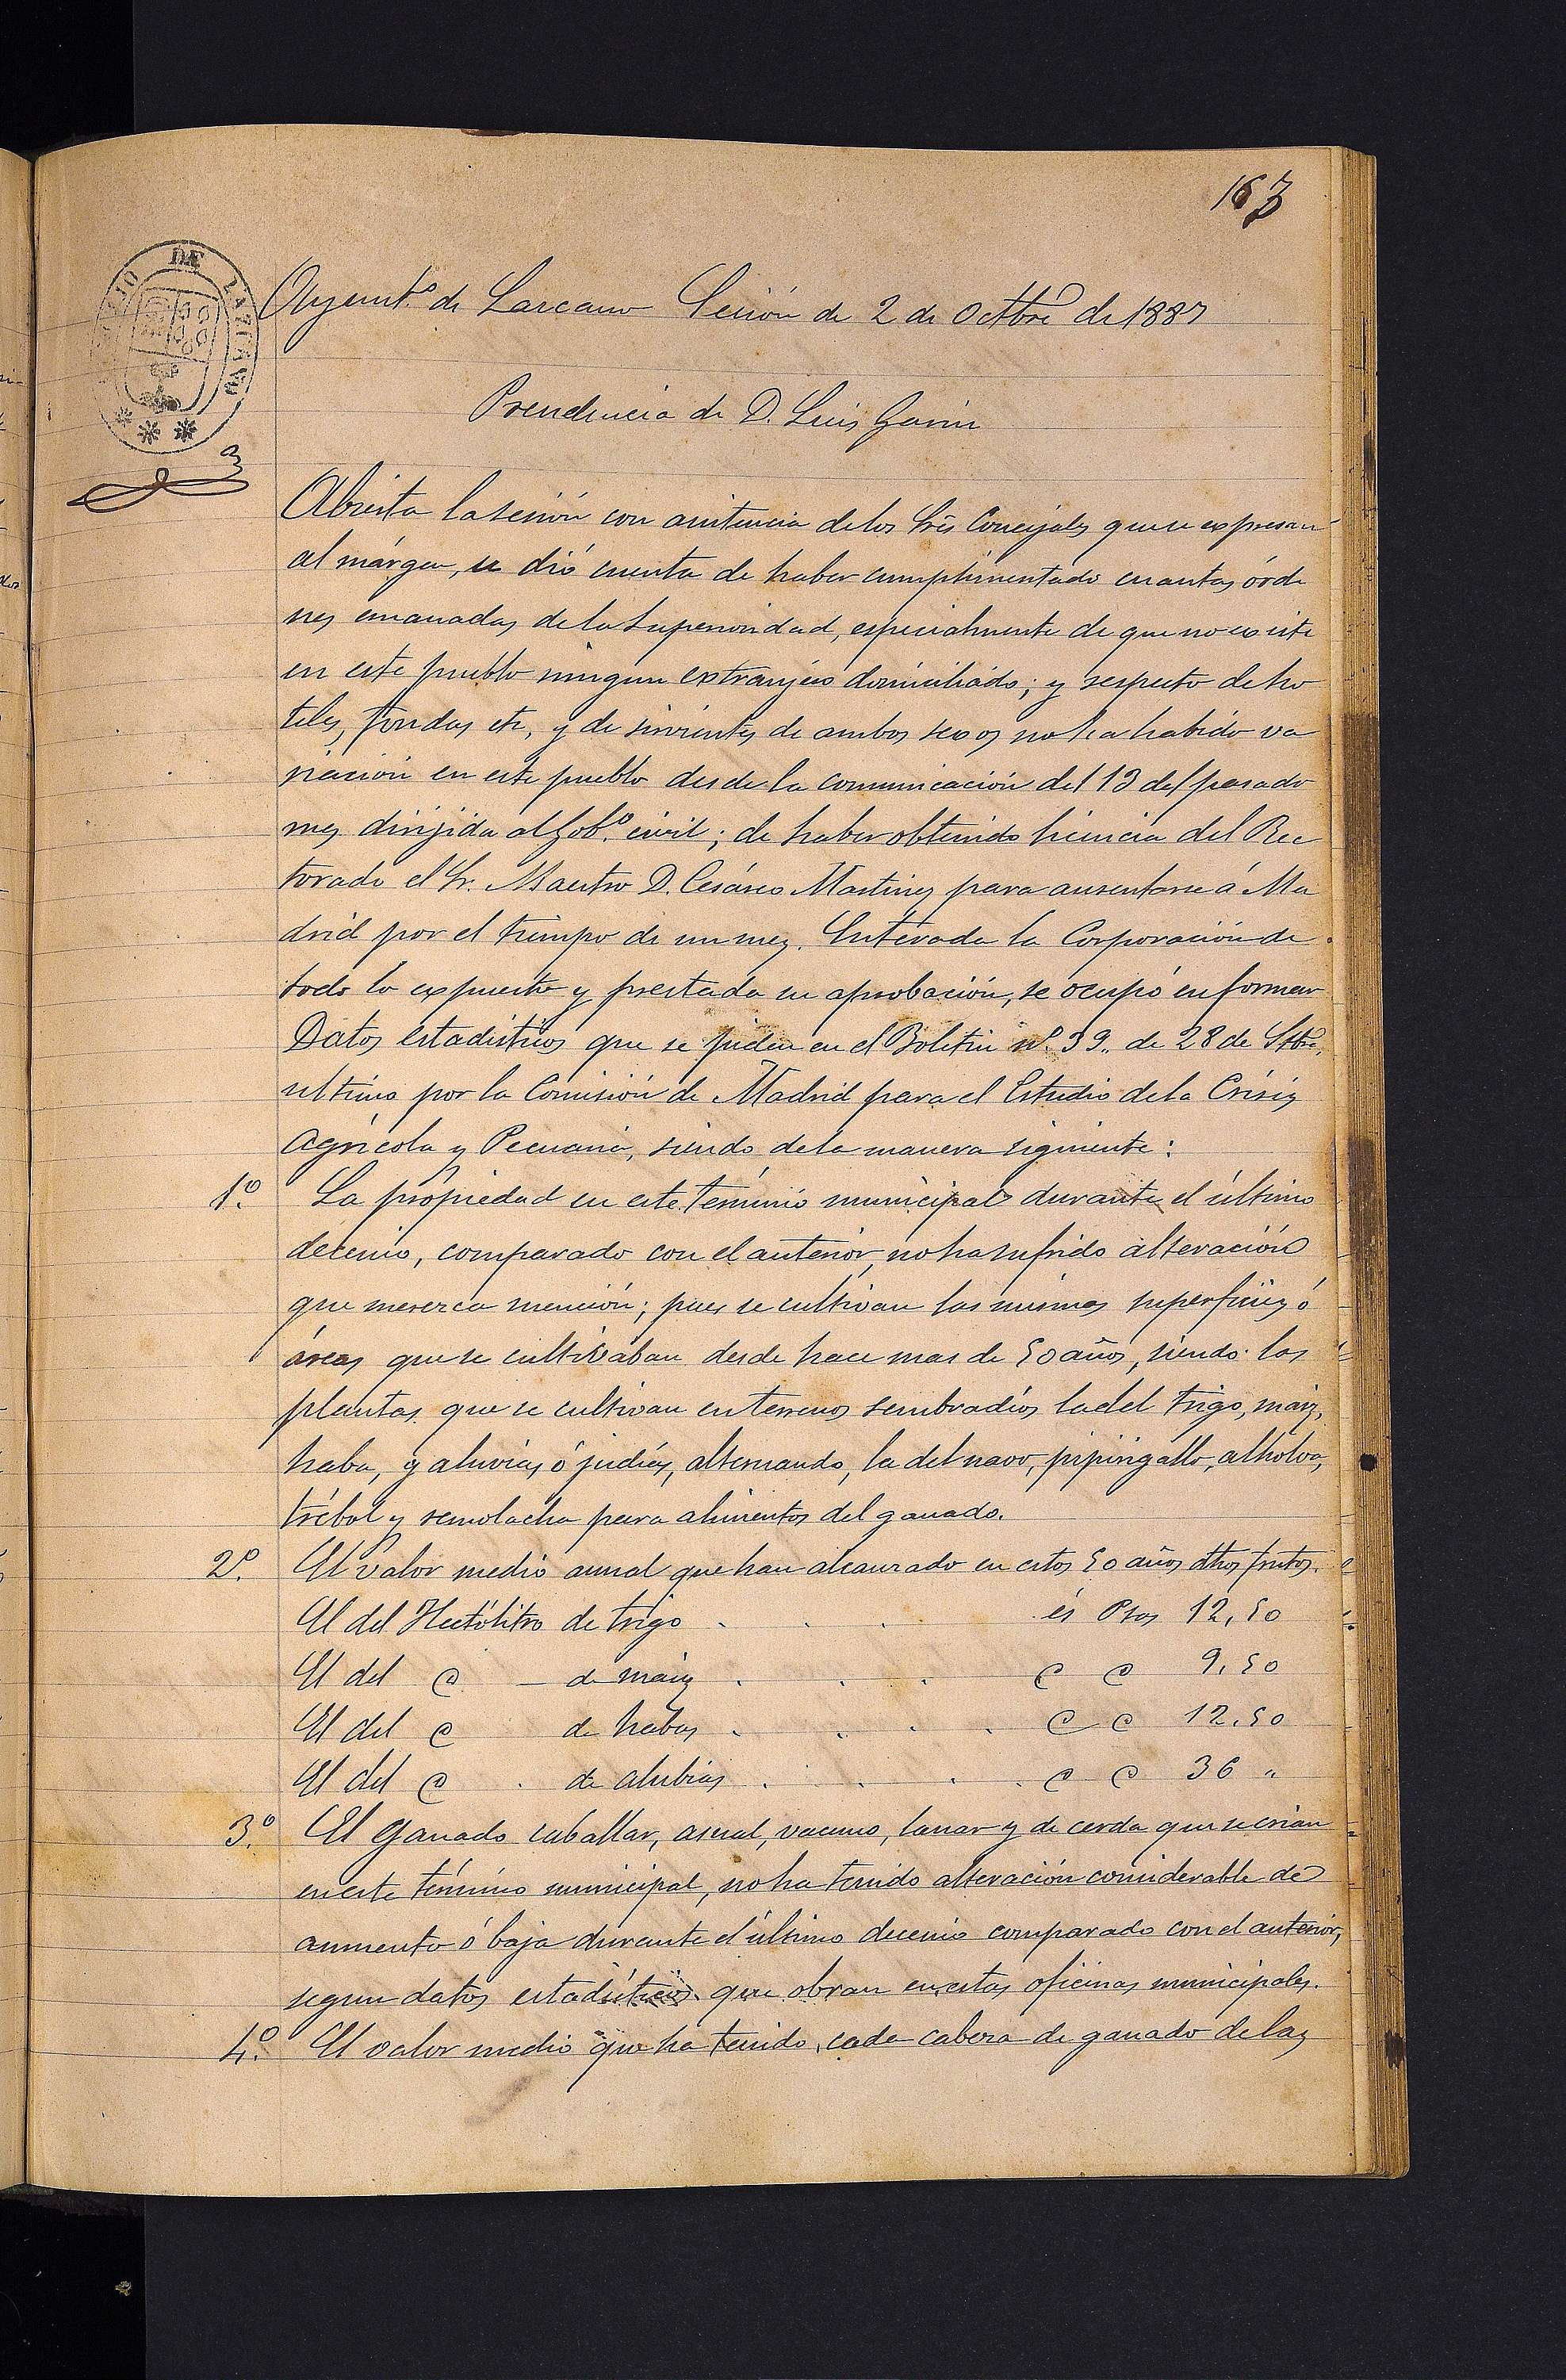 163
DE LAZCANO
Ayunt.º de Lazcano Sesión de 2 de Octbre de 1887
Presidencia de D. Luis Garin
Abierta la sesión con asistencia de los Srs Concejales que se expresan
al márgen, se dió cuenta de haber cumplimentado cuantas órde
nes emanadas de la Superioridad, especialmente de que no existe
en este pueblo ningun extranjero domiciliado; y respecto de ho
teles, fondas etc, y de sirvientes de ambos sexos no ha habido va
riación en este pueblo desde la comunicación del 13 del pasado
mes dirijida al Gob.º civil; de haber obtenido licencia del Rec
torado el Sr. Maestro D. Cesáreo Martinez para ausentarse á Ma
drid por el tiempo de un mes. Enterada la Corporación de
todo lo expuesto y prestada su aprobación, se ocupó en formar
Datos estadísticos que se piden en el Boletin nº. 39,, de 28 de Stbre,
ultimo por la Comisión de Madrid para el Estudio de la Crísis
Agrícola y Pecuaria, siendo de la manera siguiente:
1.º La propiedad en este término municipal durante el último
decenio, comparado con el anterior, no ha sufrido alteración
que merezca mención; pues se cultivan las mismas superficies ó
áreas que se cultivaban desde hace mas de 50 años, siendo las
plantas que se cultivan en terrenos sembradíos la del trigo, maiz,
haba, y aluvias ó judías, alternando, la del navo, pipirigallo, alholva,
trébol y remolacha para alimentos del ganado.
2.º El valor medio anual que han alcanzado en estos 50 años dhos frutos.
El del Hectólitro de trigo . . . . és Ptas 12,50
El del @ - de maiz . . . @ @ 9,50
El del @ de habas . . . . @ @ 12.50
El del @ . de alubias . . . . @ @ 36 "
3.º El ganado caballar, asnal, vacuno, lanar y de cerda que se crian
en este término municipal, no ha tenido alteración considerable de
aumento ó baja durante el último decenio comparado con el anterior,
segun datos estadísticos que obran en estas oficinas municipales.
4.º El valor medio que ha tenido cada cabeza de ganado de las